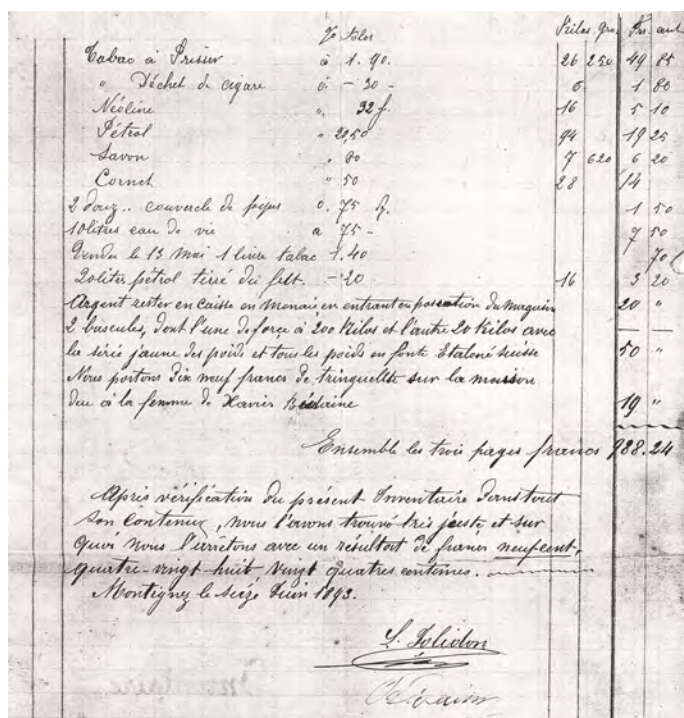 Kilos gr. frs. cent
Tabac à Priser à 1. 90. 26 250 49 85
" Déchet de cigare à - 30 - 6 1 80
Néoline " 32 f. 16 5 10
Pétrol " 20,50 94 19 25
Savon " 80 7 620 6 20
Cornet " 50 28 14
2 douz.. couvercle de pipes à. 75 1 50
10 litres eau de vie a 75 - 7 50
Vendu le 13 Mai 1 livre tabac 1.40 70
20 liter pétrol tirré du felt. - 20 16 3 20
Argent rester en caisse en monaie en entrant en possetion du magasin 20 "
2 bascules, dont l'une de force à 200 Kilos et l'autre 20 Kilos avec — —
la série jaune des poids et tous les poids en fonte Etaloné suisse 50 "
Nous portons dix neuf francs de trinquelte sur la maison
due à la femme de Xavier 19 "
Ensemble les trois pages francs 988.24
Après vérification du présent Inventaire dans tout
son contenux, nous l'avons trouvé très juste et sur
quoi nous l'arrêtons avec un résultat de francs neuf cent,
quatre-vingt-huit vingt quatres centimes.
Montignez le seize Juin 1893.
S. Jolidon